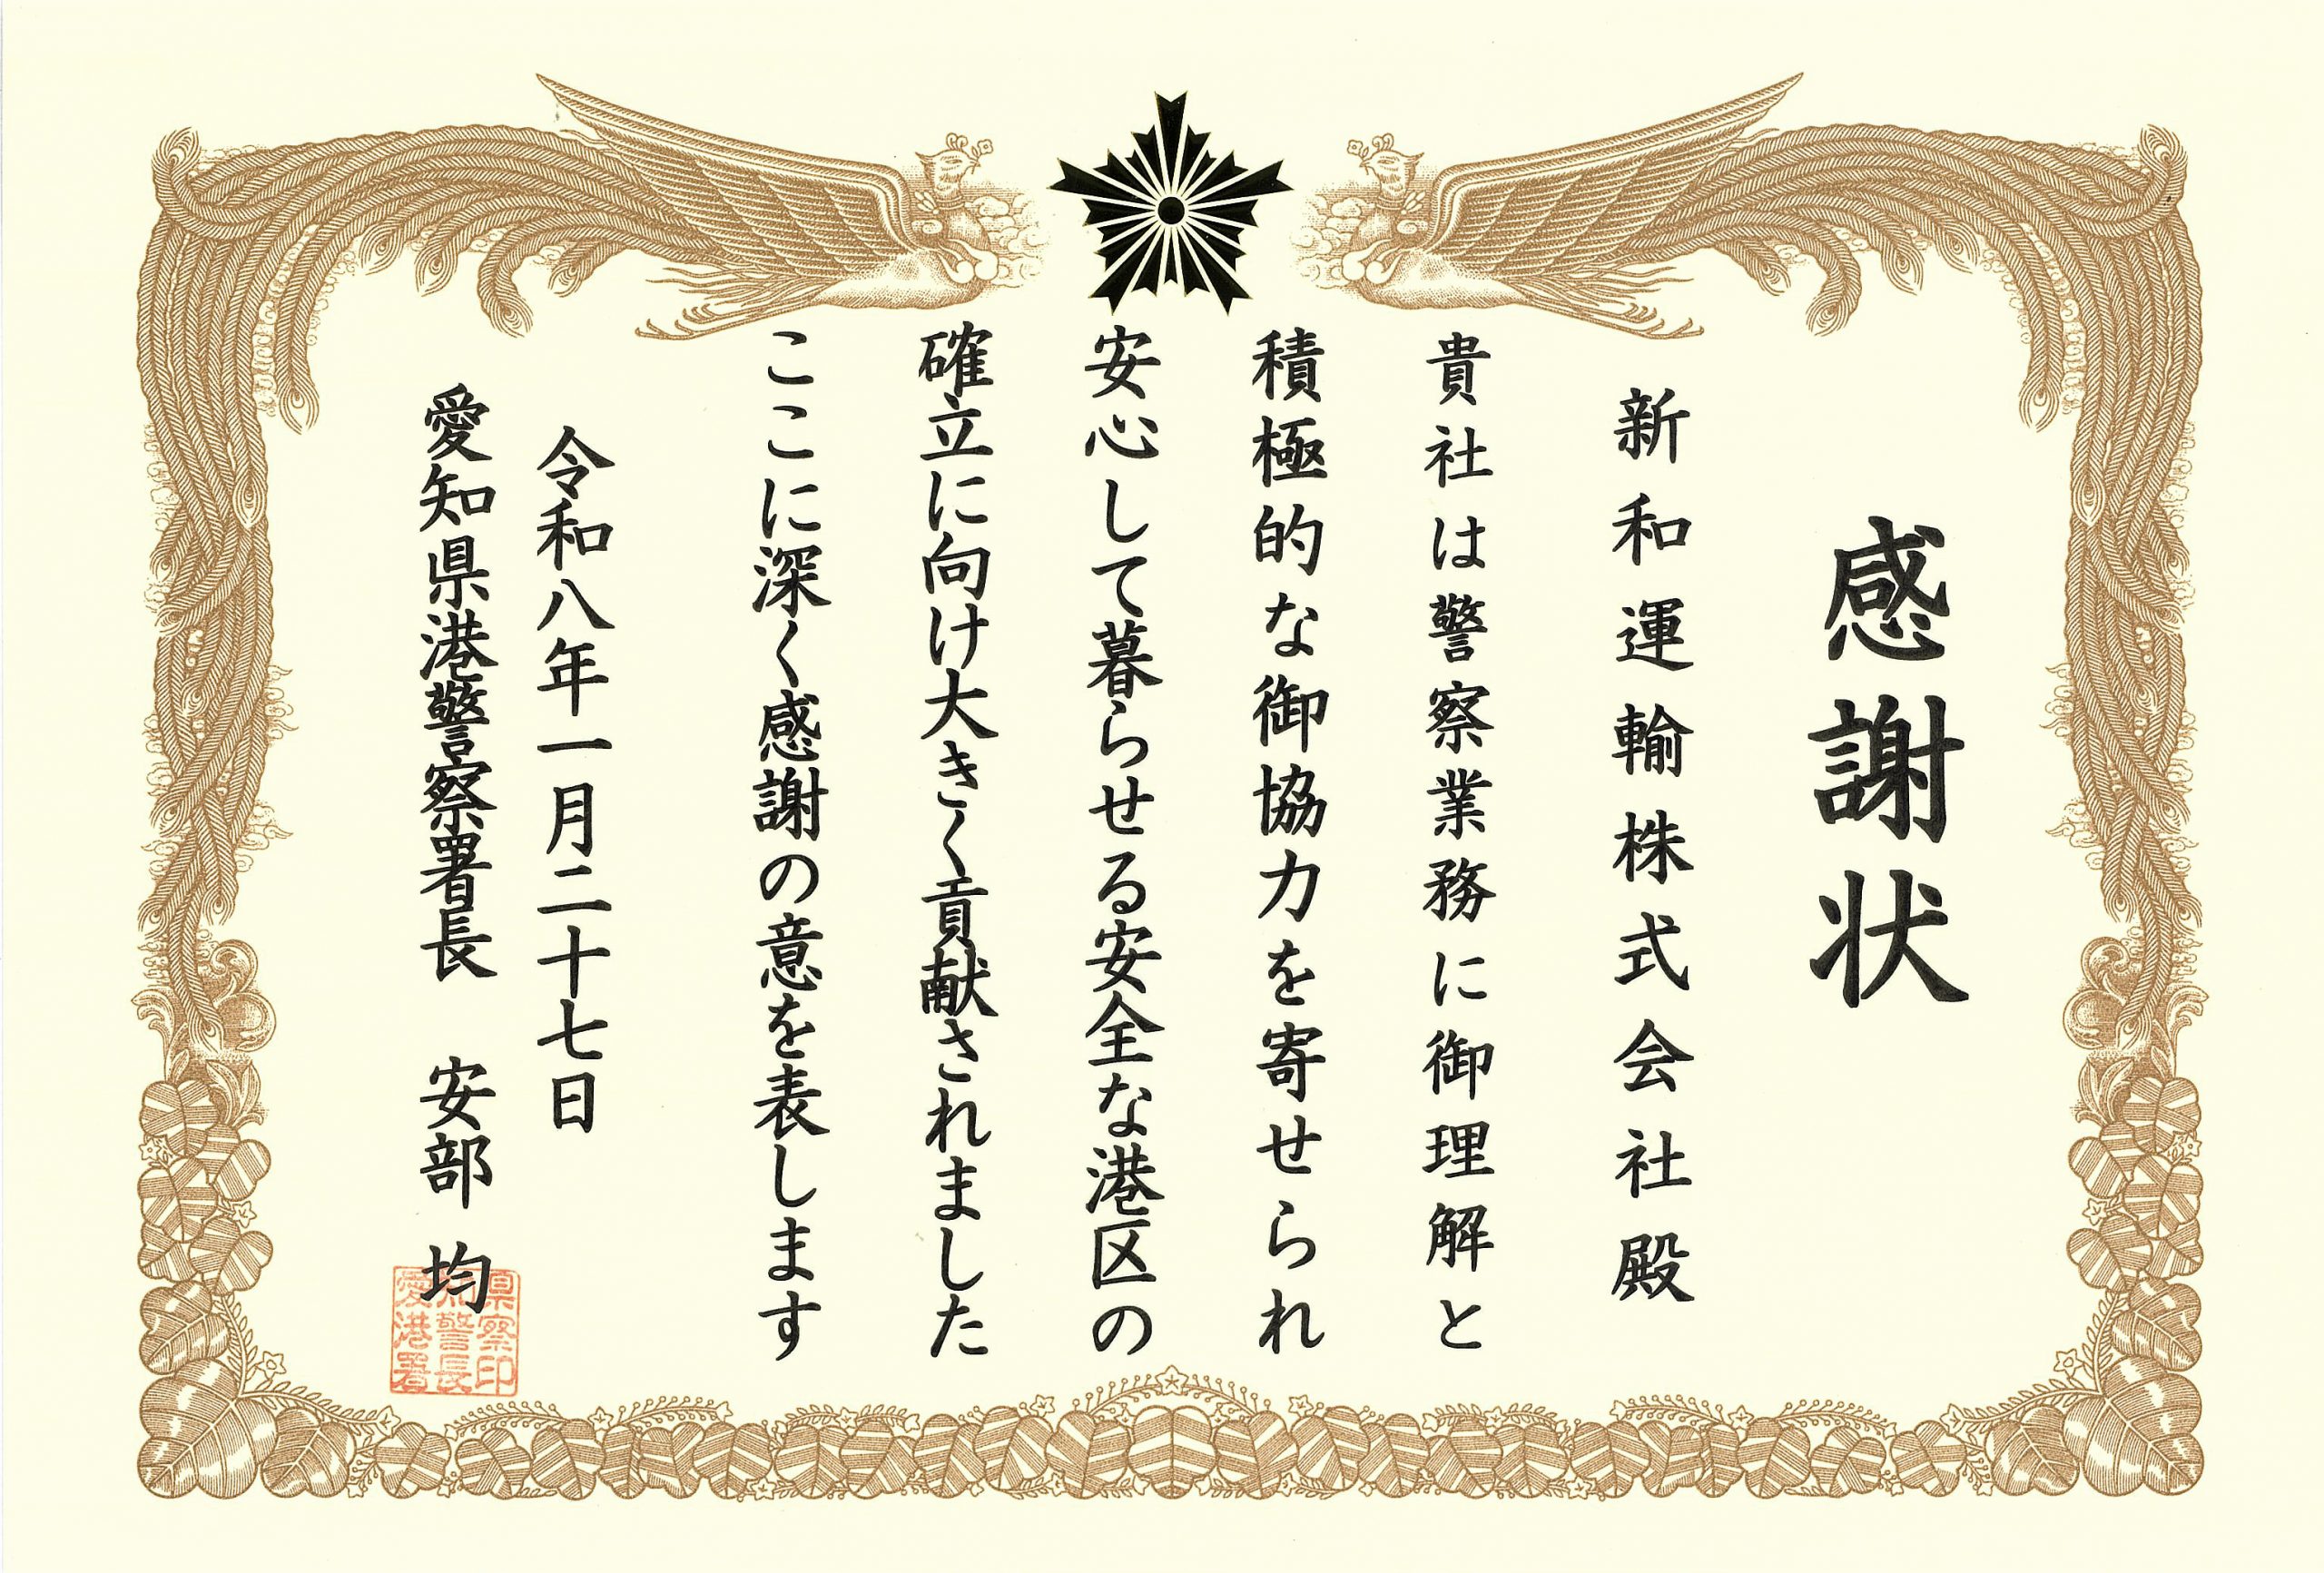 感謝状
新和運輸株式会社殿
貴社は警察業務に御理解と
積極的な御協力を寄せられ
安心して暮らせる安全な港区の
確立に向け大きく貢献されました
ここに深く感謝の意を表します
令和八年一月二十七日
愛知県港警察署長　安部　均
愛知県港警察署長印